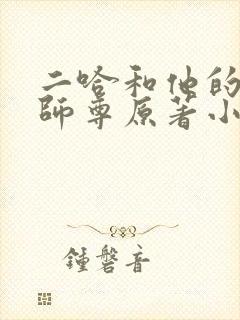 二哈和他的
師尊原著小
鍾磬音